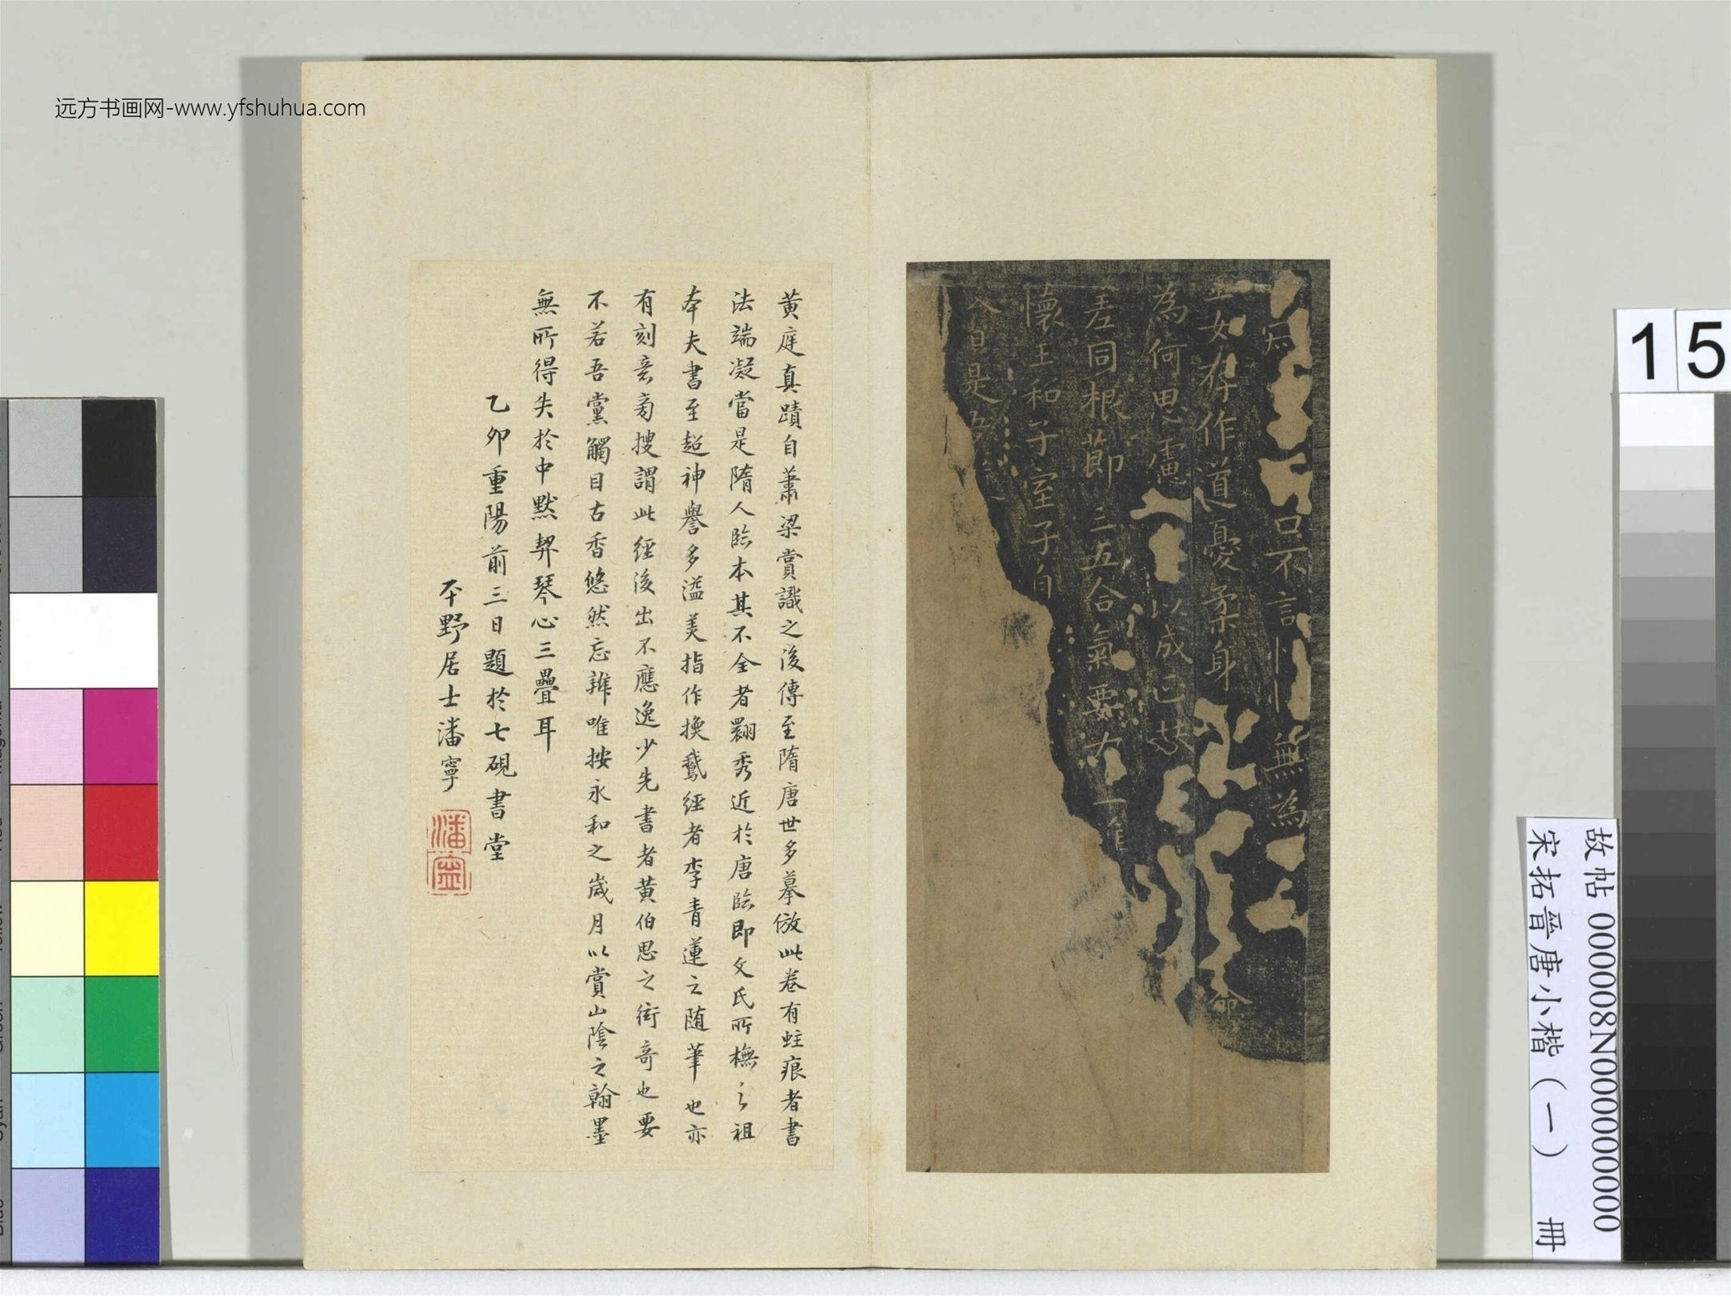 远方书画网-www.yfshuhua.com
口不言 無為
女存作道憂柔身
為何思慮 以成已
差同根節三五合氣要女一
懷王和子室子自
日是
黃庭真蹟自蕭梁賞識之後傳至隋唐世多摹倣此卷有蛀痕者書
法端凝當是隋人臨本其不全者翾秀近於唐臨即文氏所橅之祖
本夫書至超神譽多溢美指作換鵞經者李青蓮之随筆也亦
有刻意旁搜謂此經後出不應逸少先書者黃伯思之衒奇也要
不若吾黨觸目古香悠然忘辨唯按永和之歲月以賞山陰之翰墨
無所得失於中默契琴心三疊耳
乙卯重陽前三日題於七硯書堂
本野居士潘寧
潘寧
15
故帖 000008N000000000
宋拓晋唐小楷（一） 冊